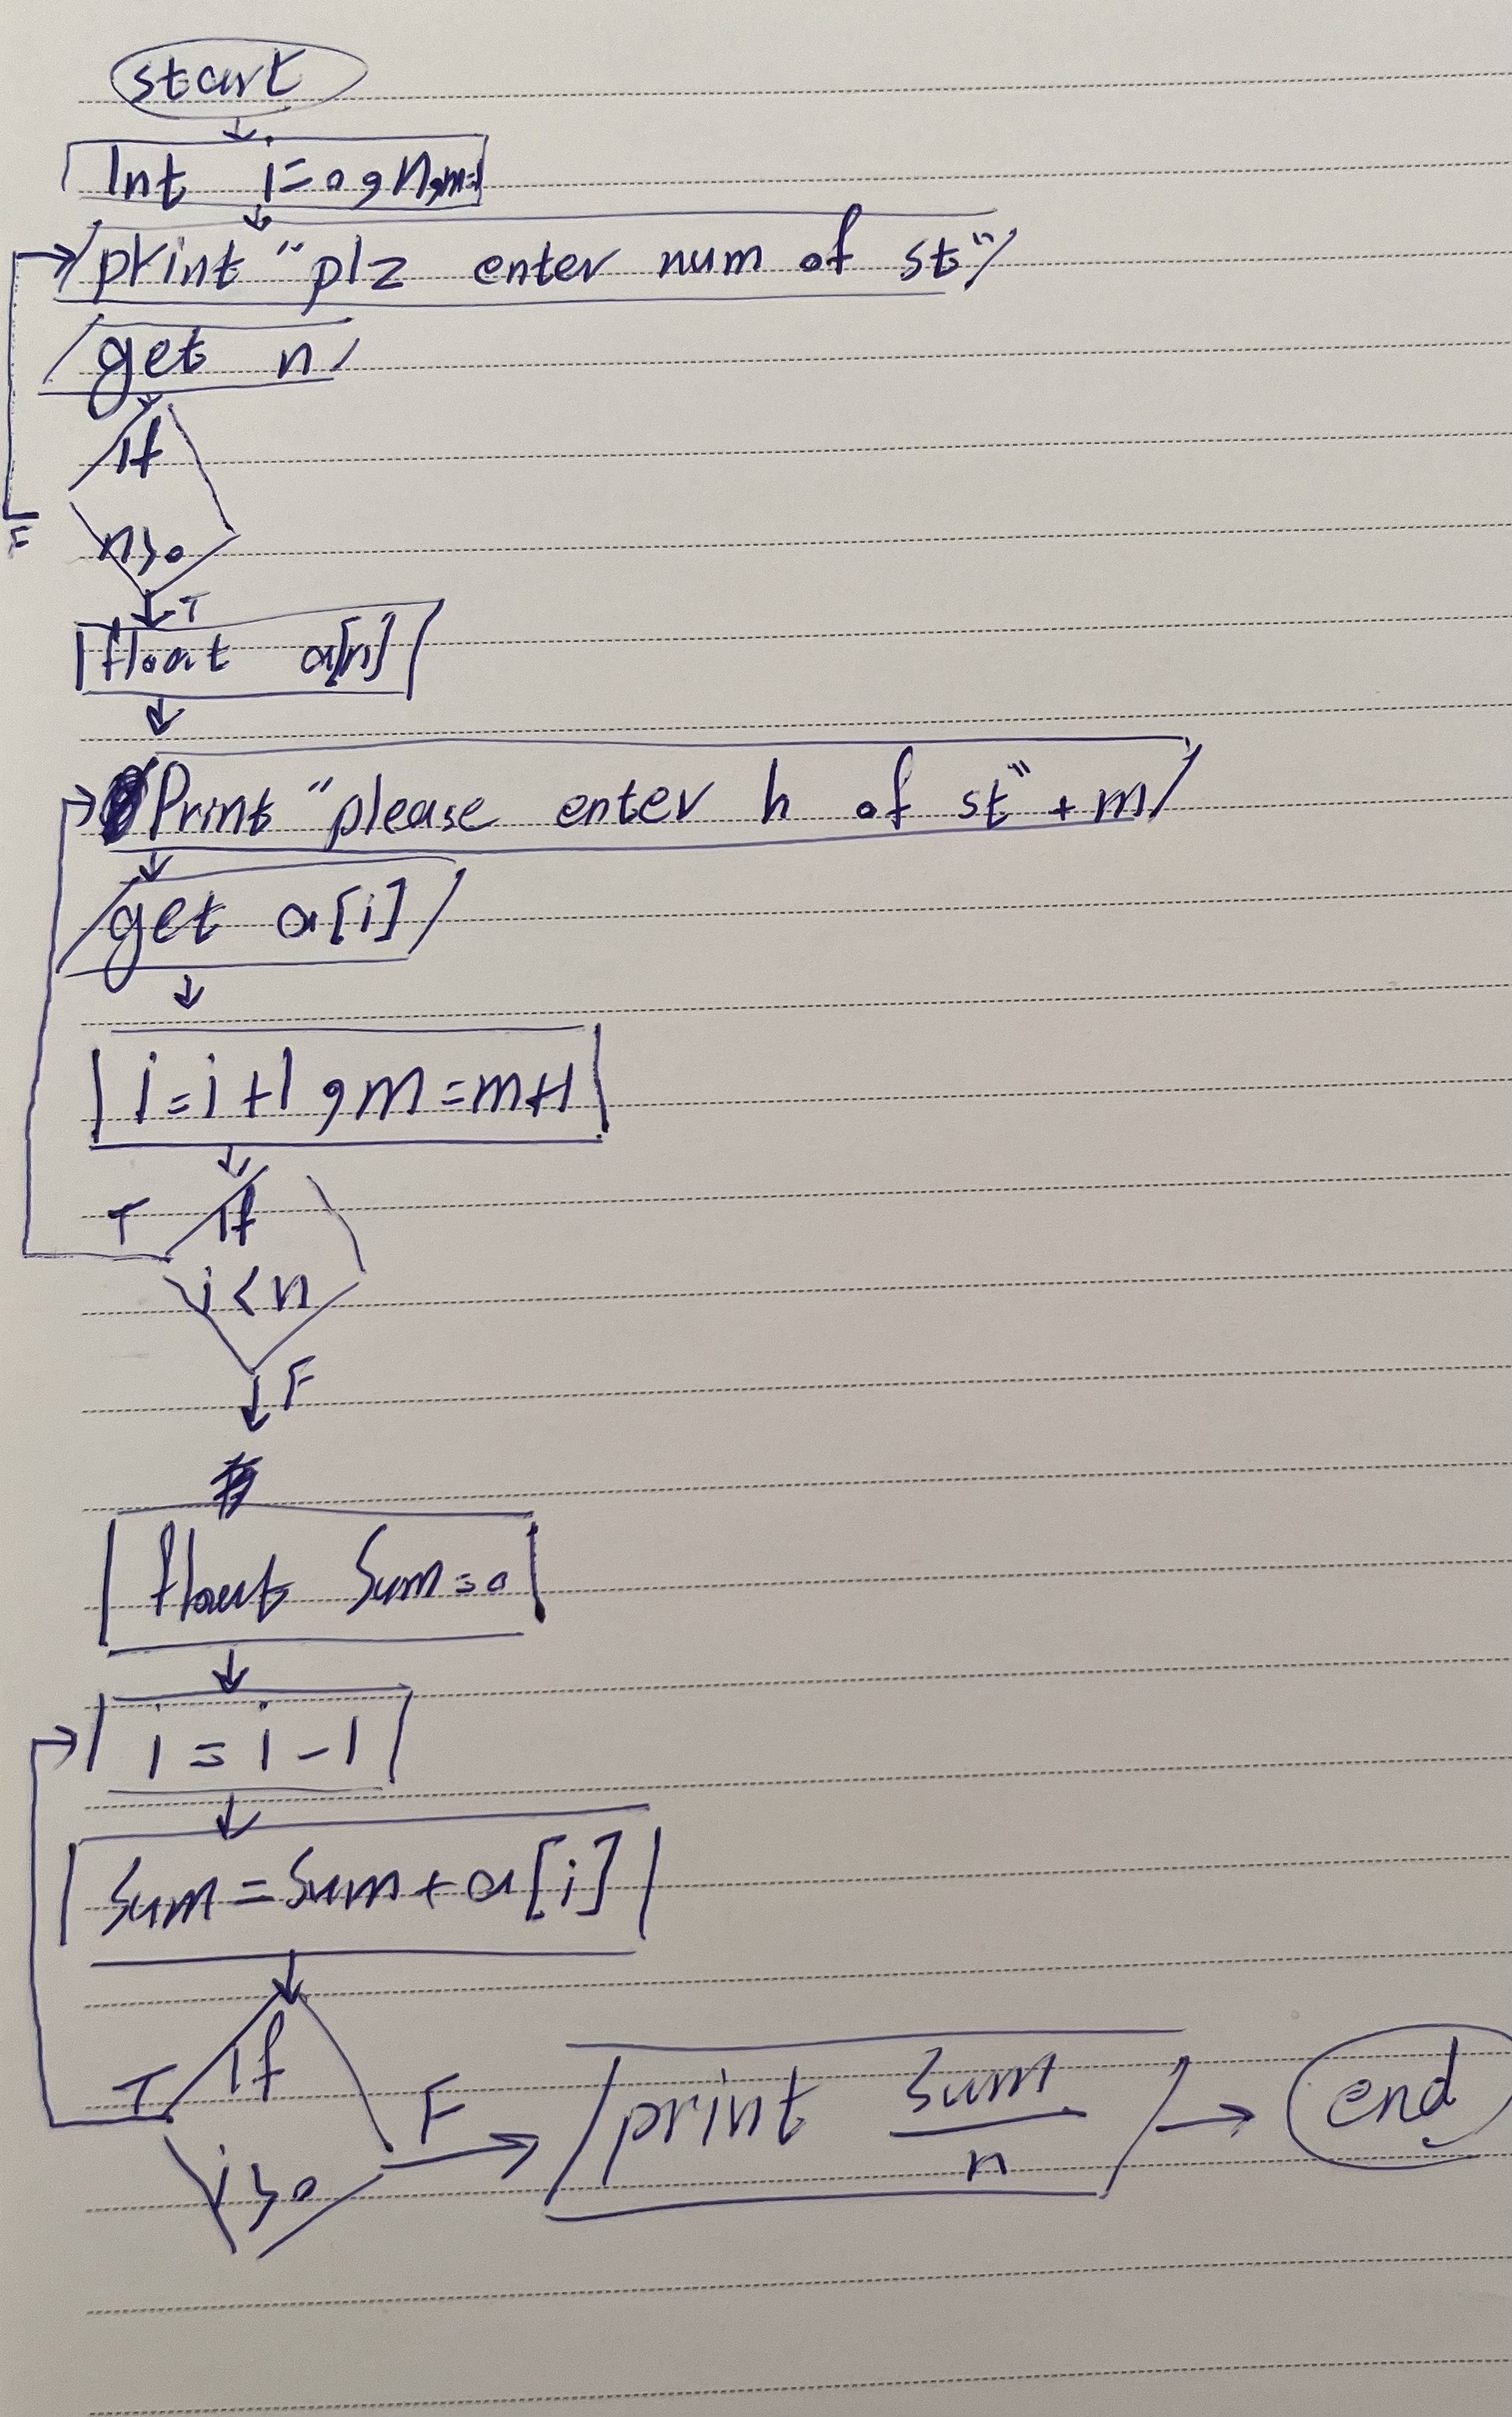 start
Int i=0, n, m=1
print "plz enter num of st"
get n
If
F
n>0
T
float a[n]
Print "please enter h of st" + m
get a[i]
i=i+1, m=m+1
T If
i<n
F
float Sum=0
i=i-1
Sum=Sum+a[i]
T If F print Sum end
i>0 n